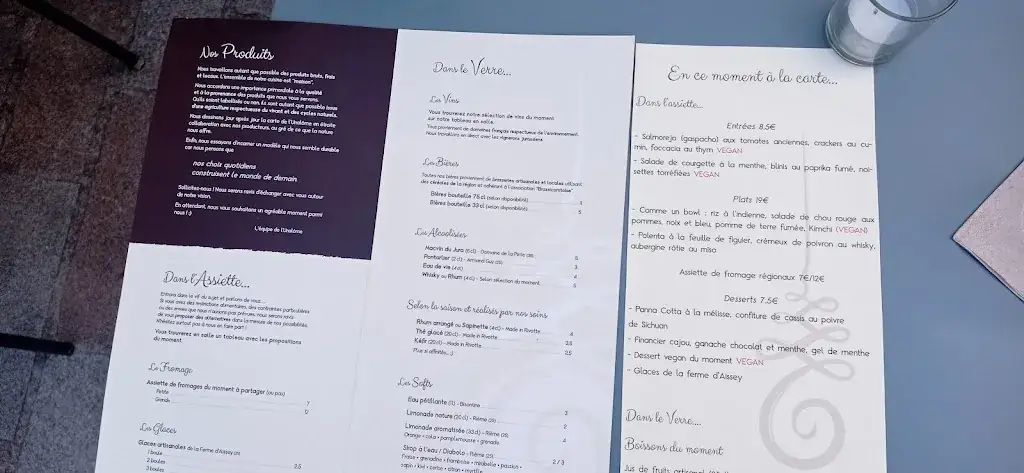 Nos Produits
Nous travaillons autant que possible des produits bruts, frais
et locaux. L'ensemble de notre cuisine est "maison".
Nous accordons une importance primordiale à la qualité
et à la provenance des produits que nous vous servons.
Qu'ils soient labellisés ou non, ils sont autant que possible issus
d'une agriculture respectueuse du vivant et des cycles naturels.
Nous dessinons jour après jour la carte de l'Unalôme en étroite
collaboration avec nos producteurs, au gré de ce que la nature
nous offre.
Enfin, nous essayons d'incarner un modèle qui nous semble durable
car nous pensons que
nos choix quotidiens
construisent le monde de demain
Sollicitez-nous ! Nous serons ravis d'échanger avec vous autour
de notre vision.
En attendant, nous vous souhaitons un agréable moment parmi
nous !:)
L'équipe de l'Unalôme
Dans l'Assiette...
Entrons dans le vif du sujet et parlons de vous...
Si vous avez des restrictions alimentaires, des contraintes particulières
ou des envies que nous n'aurions pas prévues, nous serons ravis
de vous proposer des alternatives dans la mesure de nos possibilités.
N'hésitez surtout pas à nous en faire part !
Vous trouverez en salle un tableau avec les propositions
du moment.
Le Fromage
Assiette de fromages du moment à partager (ou pas)
Petite 7
Grande 12
Les Glaces
Glaces artisanales de la Ferme d'Aissey (25)
1 boule 2.5
2 boules
3 boules
Dans le Verre...
Les Vins
Vous trouverez notre sélection de vins du moment
sur notre tableau en salle.
Tous proviennent de domaines français respectueux de l'environnement.
Nous travaillons en direct avec les vignerons jurassiens.
Les Bières
Toutes nos bières proviennent de brasseries artisanales et locales utilisant
des céréales de la région et adhérant à l'association "Brassicomtoise"
Bières bouteille 75 cl (selon disponibilité)
Bières bouteille 33 cl (selon disponibilité) 5
Les Alcoolisées
Macvin du Jura (6 cl) - Domaine de la Pinte (39) 5
Pontarlier (2 cl) - Armand Guy (25) 3
Eau de vie (4 cl) 4
Whisky ou Rhum (4 cl) - Selon sélection du moment 5
Selon la saison et réalisés par nos soins
Rhum arrangé ou Sapinette (4 cl) - Made in Rivotte 4
Thé glacé (20 cl) - Made in Rivotte 3.5
Kéfir (20 cl) - Made in Rivotte 2.5
Plus si affinités... ;)
Les Softs
Eau pétillante (1l) - Biovntine 3
Limonade nature (20 cl) - Rième (25) 2
Limonade aromatisée (33 cl) - Rième (25) 4
Orange • cola • pamplemousse • grenade
Sirop à l'eau / Diabolo - Rième (25) 2 / 3
Fraise • grenadine • framboise • mirabelle • passion •
sapin • kiwi • cerise • citron • myrtille
En ce moment à la carte...
Dans l'assiette...
Entrées 8.5€
- Salmorejo (gaspacho) aux tomates anciennes, crackers au cu-
min, foccacia au thym VEGAN
- Salade de courgette à la menthe, blinis au paprika fumé, noi-
settes torréfiées VEGAN
Plats 19€
- Comme un bowl : riz à l'indienne, salade de chou rouge aux
pommes, noix et bleu, pomme de terre fumée, Kimchi (VEGAN)
- Polenta à la feuille de figuier, crémeux de poivron au whisky,
aubergine rôtie au miso
Assiette de fromage régionaux 7€/12€
Desserts 7.5€
- Panna Cotta à la mélisse, confiture de cassis au poivre
de Sichuan
- Financier cajou, ganache chocolat et menthe, gel de menthe
- Dessert vegan du moment VEGAN
- Glaces de la ferme d'Aissey
Dans le Verre...
Boissons du moment
Jus de fruits